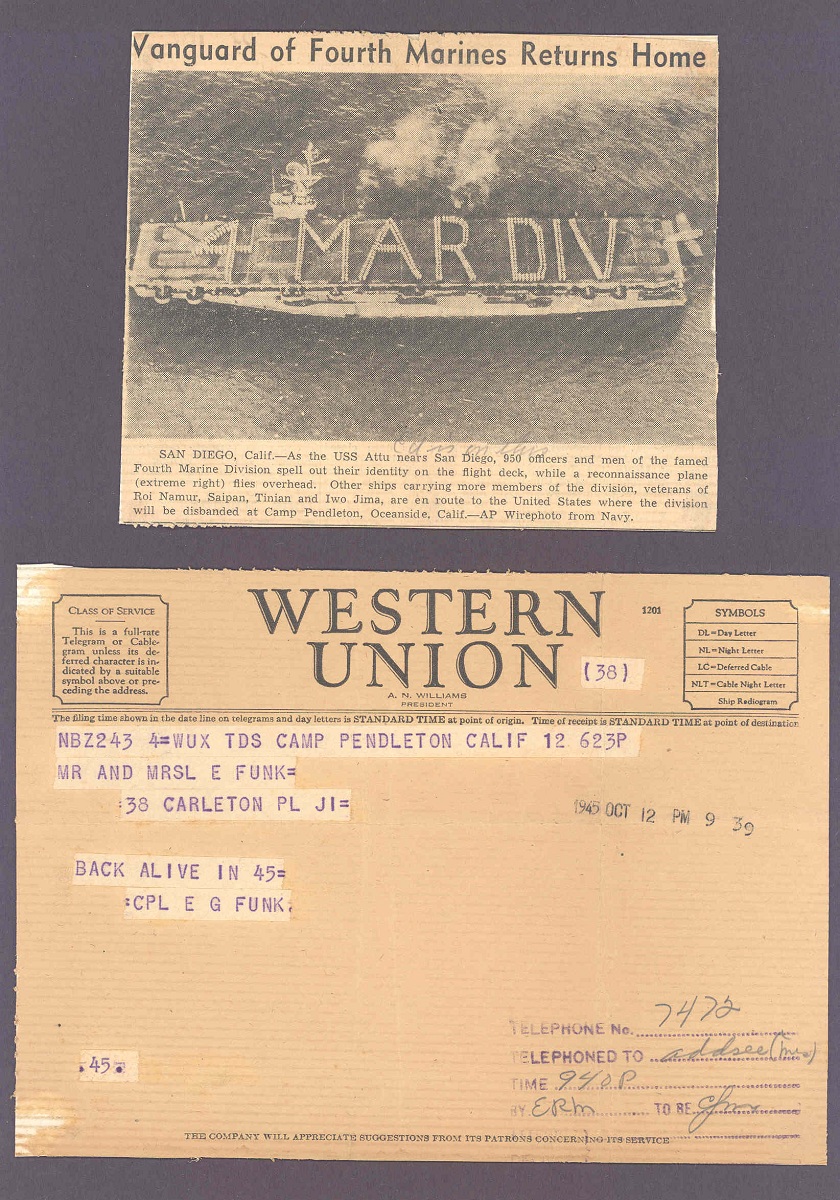 Vanguard of Fourth Marines Returns Home
4 MAR DIV
SAN DIEGO, Calif.—As the USS Attu nears San Diego, 950 officers and men of the famed
Fourth Marine Division spell out their identity on the flight deck, while a reconnaissance plane
(extreme right) flies overhead. Other ships carrying more members of the division, veterans of
Roi Namur, Saipan, Tinian and Iwo Jima, are en route to the United States where the division
will be disbanded at Camp Pendleton, Oceanside, Calif.—AP Wirephoto from Navy.
CLASS OF SERVICE
This is a full-rate
Telegram or Cable-
gram unless its de-
ferred character is in-
dicated by a suitable
symbol above or pre-
ceding the address.
WESTERN
UNION
(38)
A. N. WILLIAMS
PRESIDENT
1201
SYMBOLS
DL=Day Letter
NL=Night Letter
LC=Deferred Cable
NLT=Cable Night Letter
Ship Radiogram
The filing time shown in the date line on telegrams and day letters is STANDARD TIME at point of origin. Time of receipt is STANDARD TIME at point of destination
NBZ243 4=WUX TDS CAMP PENDLETON CALIF 12 623P
MR AND MRSL E FUNK=
:38 CARLETON PL JI=
1945 OCT 12 PM 9 39
BACK ALIVE IN 45=
:CPL E G FUNK.
.45.
TELEPHONE No. 7472
TELEPHONED TO addsee (mrs)
TIME 940P
BY ERM TO BE
THE COMPANY WILL APPRECIATE SUGGESTIONS FROM ITS PATRONS CONCERNING ITS SERVICE